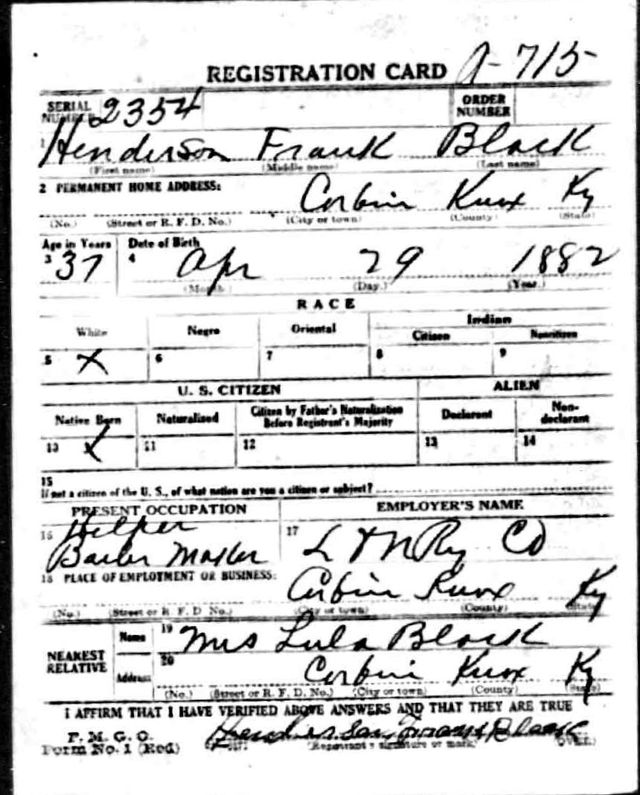 REGISTRATION CARD A-715
SERIAL NUMBER 2354 ORDER NUMBER
1 Henderson Frank Black
(First name) (Middle name) (Last name)
2 PERMANENT HOME ADDRESS:
Corbin Knox Ky
(No.) (Street or R. F. D. No.) (City or town) (County) (State)
Age in Years Date of Birth
3 37 4 Apr 29 1882
(Month.) (Day.) (Year.)
RACE
White Negro Oriental Indian
Citizen Noncitizen
5 X 6 7 8 9
U. S. CITIZEN ALIEN
Native Born Naturalized Citizen by Father's Naturalization Before Registrant's Majority Declarant Non-declarant
10 X 11 12 13 14
15
If not a citizen of the U. S., of what nation are you a citizen or subject?
PRESENT OCCUPATION EMPLOYER'S NAME
16 Helper 17
L & N Ry Co
18 PLACE OF EMPLOYMENT OR BUSINESS:
Corbin Knox Ky
(No.) (Street or R. F. D. No.) (City or town) (County) (State)
NEAREST RELATIVE Name 19 Mrs Lula Black
Address 20 Corbin Knox Ky
(No.) (Street or R. F. D. No.) (City or town) (County) (State)
I AFFIRM THAT I HAVE VERIFIED ABOVE ANSWERS AND THAT THEY ARE TRUE
P. M. G. O.
Form No. 1 (Red) Henderson Frank Black
(Registrant's signature or mark) (OVER)